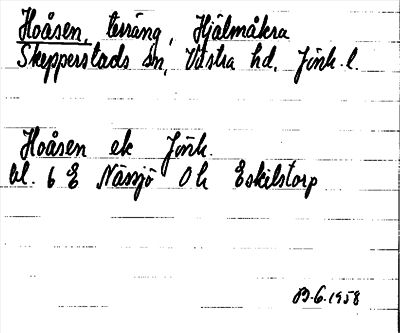 Hoåsen, terräng, Hjälmåkra
Skepperstads sn, Västra hd, Jönk. l.
Hoåsen ek Jönk.
bl. 6 E Nässjö O h Eskilstorp
6.1958